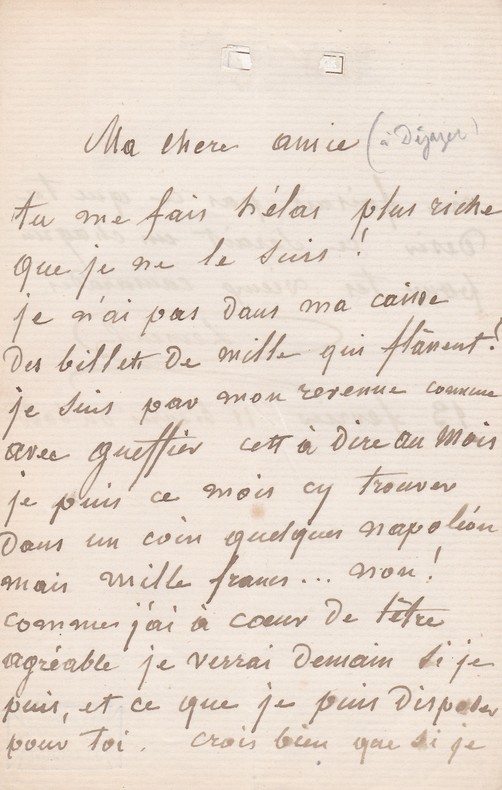 Ma chere amie (à Déjazet)
tu me fais hélas plus riche
que je ne le suis !
je n'ai pas dans ma caisse
des billets de mille qui flânent !
je suis par mon revenue comme
avec gueffier cett à dire au mois
je puis ce mois cy trouver
dans un coin quelques napoléon
mais mille francs... non !
comme j'ai à cœur de t'être
agréable je verrai demain si je
puis, et ce que je puis disposer
pour toi. crois bien que si je